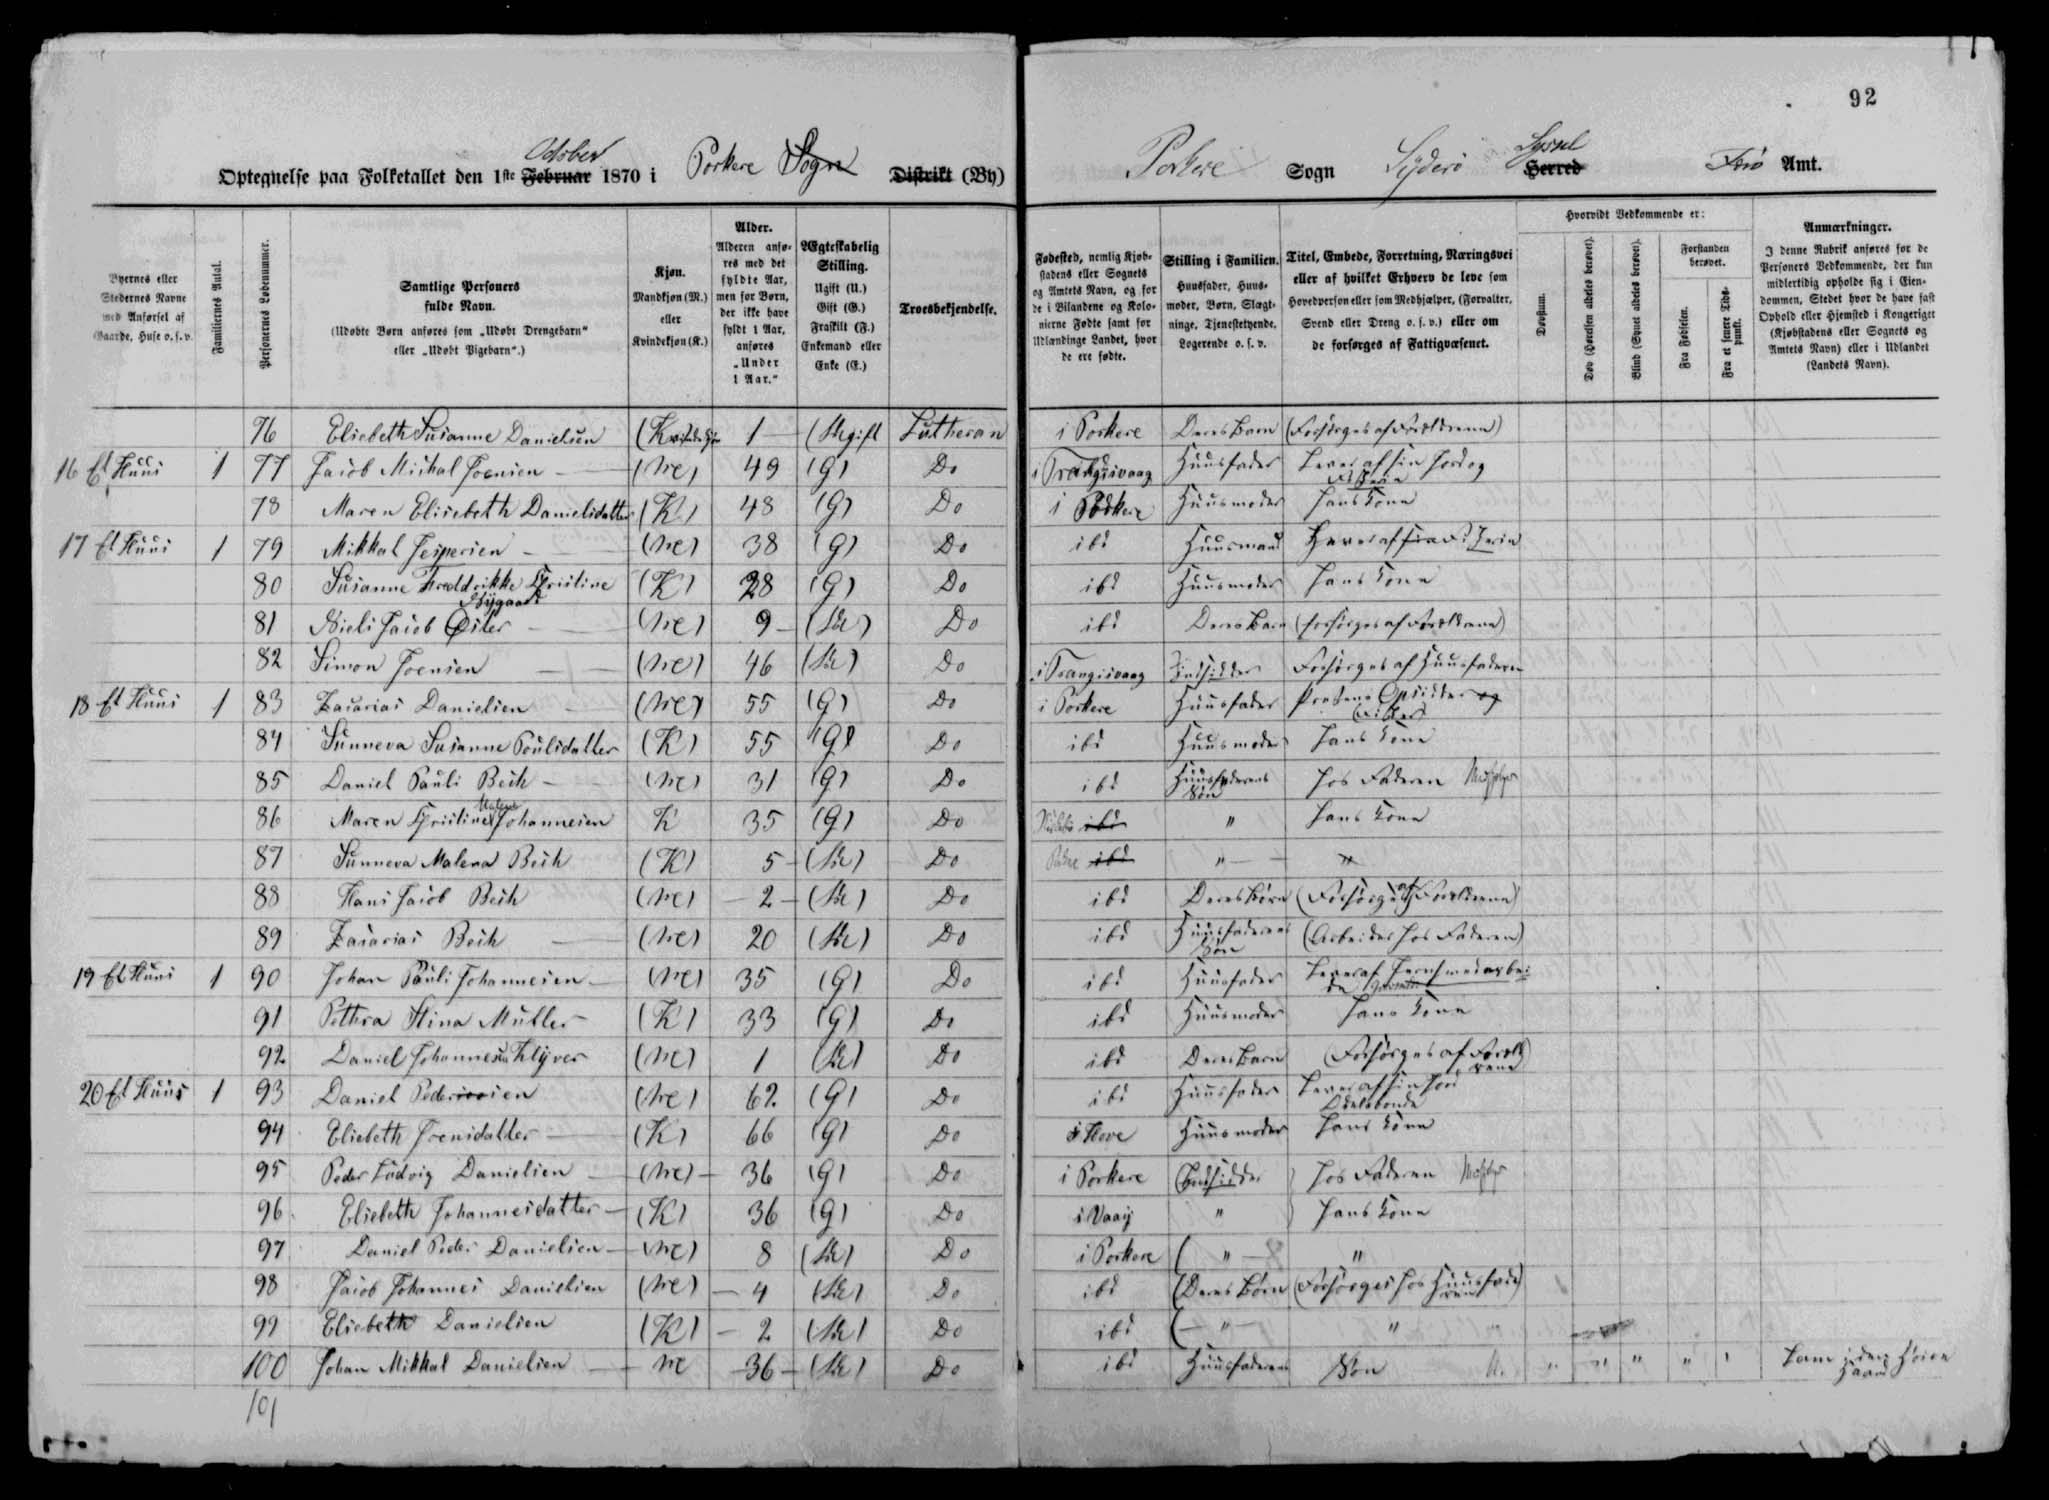 92
October
Optegnelse paa Folketallet den 1ste Februar 1870 i Porkere Sogn Distrikt (By)
Porkere Sogn Syderö Syssel Herred Færö Amt.
Byernes eller Stedernes Navne med Anførsel af Gaarde, Huse o. s. v.
Familiernes Antal.
Personernes Løbenummer.
Samtlige Personers fulde Navn. (Udøbte Børn anføres som „Udøbt Drengebarn“ eller „Udøbt Pigebarn“.)
Kjøn. Mandkjøn (M.) eller Kvindekjøn (K.)
Alder. Alderen anføres med det fyldte Aar, men for Børn, der ikke have fyldt 1 Aar, anføres „Under 1 Aar.“
Ægteskabelig Stilling. Ugift (U.) Gift (G.) Fraskilt (F.) Enkemand eller Enke (E.)
Troesbekjendelse.
Fødested, nemlig Kjøbstadens eller Sognets og Amtets Navn, og for de i Bilandene og Kolonierne Fødte samt for Udlændinge Landet, hvor de ere fødte.
Stilling i Familien. Huusfader, Huusmoder, Børn, Slægtninge, Tjenestetyende, Logerende o. s. v.
Titel, Embede, Forretning, Næringsvei eller af hvilket Erhverv de leve som Hovedperson eller som Medhjælper, (Forvalter, Svend eller Dreng o. s. v.) eller om de forsørges af Fattigvæsenet.
Hvorvidt Vedkommende er:
Døvstum.
Døv (Hørelsen aldeles berøvet).
Blind (Synet aldeles berøvet).
Forstanden berøvet.
Fra Fødselen.
Fra et senere Tidspunkt.
Anmærkninger. I denne Rubrik anføres for de Personers Vedkommende, der kun midlertidig opholde sig i Eiendommen, Stedet hvor de have fast Ophold eller Hjemsted i Kongeriget (Kjøbstadens eller Sognets og Amtets Navn) eller i Udlandet (Landets Navn).
76 Elsebeth Susanne Danielsen (Kvindekjön 1 (Ugift Lutheran i Porkere Deres Barn (Forsörges af Forældrene)
16 Et Huus 1 77 Jacob Michal Joensen (M) 49 (G) Do i Trangisvaag Huusfader Lever af sin Jord og Fiskerie
78 Maren Elisebeth Danielsdatter (K) 48 (G) Do i Porkere Huusmoder hans Kone
17 Et Huus 1 79 Mikkal Jespersen (M) 38 (G) Do ibd Huusmand Lever af Fiskerie
80 Susanne Fredrikke Christine Nygaard (K) 28 (G) Do ibd Huusmoder hans Kone
81 Niels Jacob Öster (M) 9 (U) Do ibd Deres Barn (forsörges af Forældrene)
82 Simon Joensen (M) 46 (U) Do i Trangisvaag Indsidder Forsörges af Huusfaderen
18 Et Huus 1 83 Zacarias Danielsen (M) 55 (G) Do i Porkere Huusfader Opsidder og Fisker
84 Sunneva Susanne Poulsdatter (K) 55 (G) Do ibd Huusmoder hans Kone
85 Daniel Pauli Bech (M) 31 (G) Do ibd Huusfaderens Sön hos Faderen
86 Maren Christine Malene Johannesen K 35 (G) Do ibd " hans Kone
87 Sunneva Malena Bech (K) 5 (U) Do ibd " "
88 Hans Jacob Bech (M) 2 (U) Do ibd Deres Börn (Forsörges af Forældrene)
89 Zacarias Bech (M) 20 (U) Do ibd Huusfaderens Sön (Arbeider hos Faderen)
19 Et Huus 1 90 Johan Pauli Johannesen (M) 35 (G) Do ibd Huusfader Lever af
91 Pethra Stina Müller (K) 33 (G) Do ibd Huusmoder hans Kone
92 Daniel Johannesen Klyver (M) 1 (U) Do ibd Deres Barn (Forsörges af Forældrene)
20 Et Huus 1 93 Daniel Pedersen (M) 62 (G) Do ibd Huusfader Lever af sin Jord Odelsbonde
94 Elsebeth Joensdatter (K) 66 (G) Do i Hove Huusmoder hans Kone
95 Peder Ludvig Danielsen (M) 36 (G) Do i Porkere Indsidder hos Faderen
96 Elsebeth Johannesdatter (K) 36 (G) Do i Vaag " hans Kone
97 Daniel Peder Danielsen (M) 8 (U) Do i Porkere " "
98 Jacob Johannes Danielsen (M) 4 (U) Do ibd (Deres Börn (Forsörges hos Huusfaderen)
99 Elsebeth Danielsen (K) 2 (U) Do ibd " "
100 Johan Mikkal Danielsen M 36 (U) Do ibd Huusfaderens Sön " " " " " Lam i den Höire Haand
101